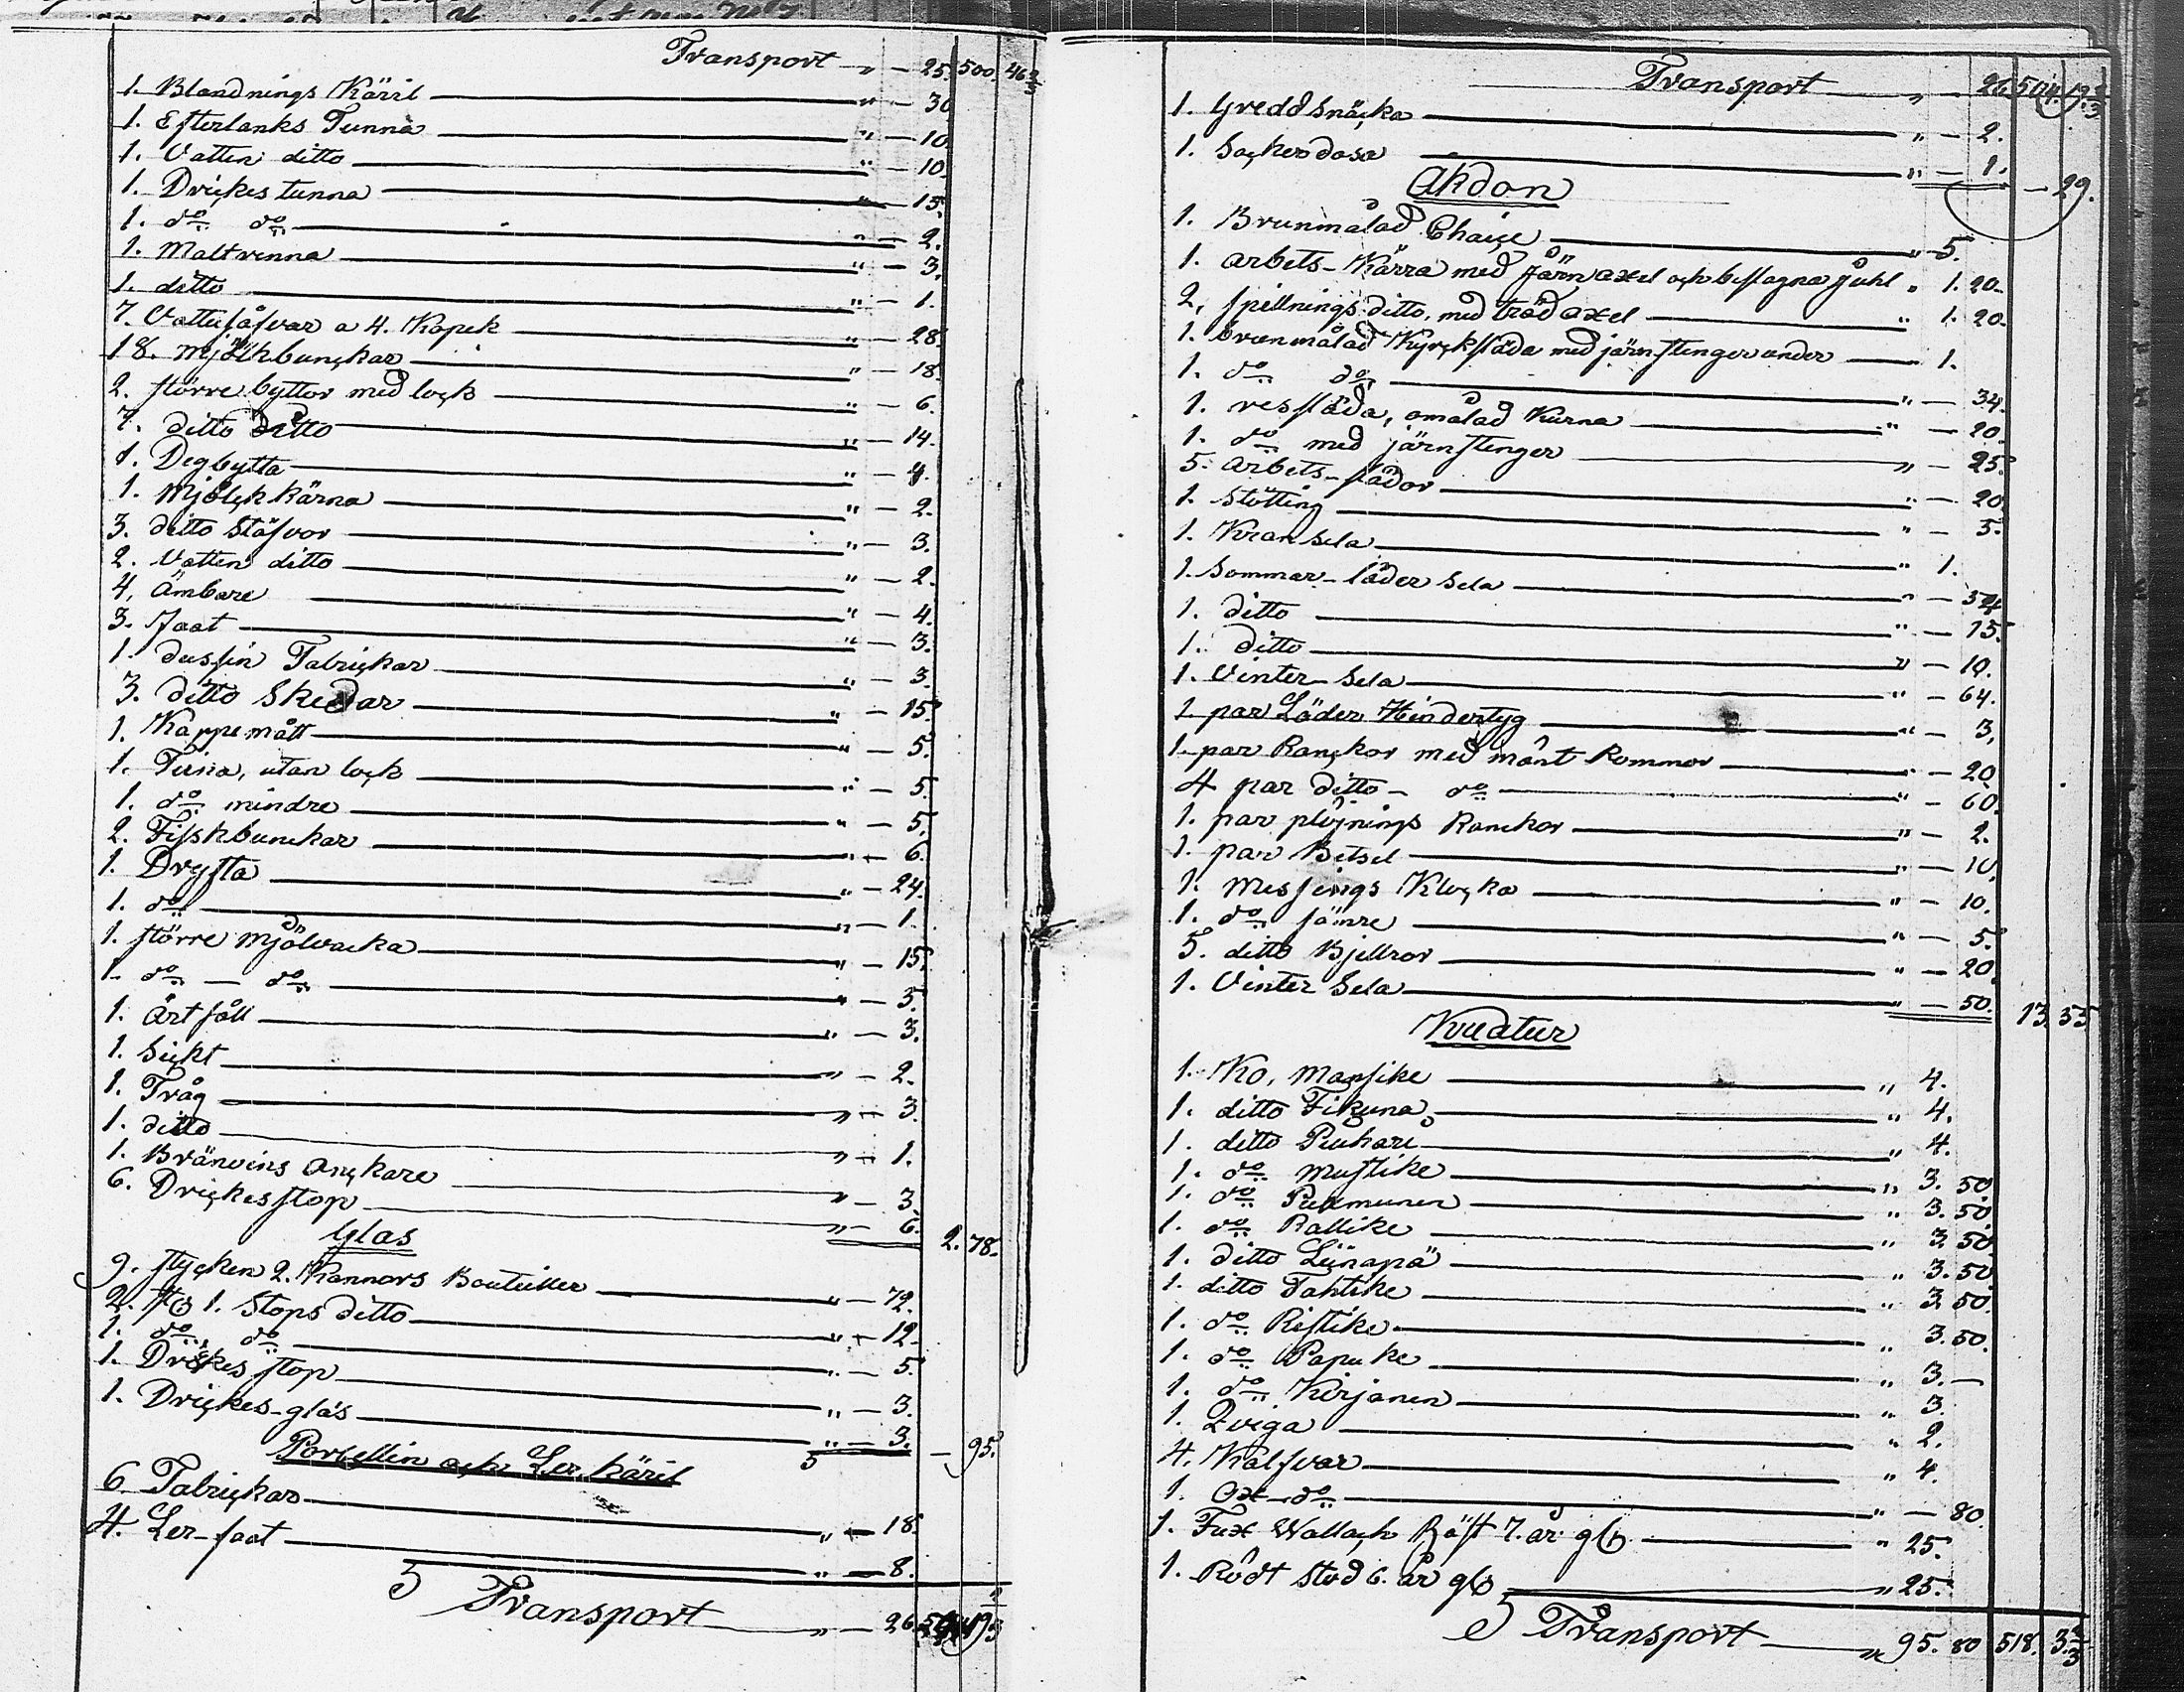 Transport " — 25. 500. 46 2/3
1. Blandnings Käril " — 30
1. Efterlanks Tunna " — 10
1. Vatten ditto " — 10.
1. Drickes tunna " — 15.
1. do do " — 2.
1. Maltrenna " — 3.
1. ditto " — 1.
7. Vattusåfvar a 4. Kopek " — 28.
18. Mjölkbunckar " — 18.
2. större byttor med lock " — 6.
7. ditto ditto " — 14.
1. Degbytta " — 4.
1. Mjölck kärna " — 2.
3. ditto Stäfvor " — 3.
2. Vatten ditto " — 2.
4. Ämbare " — 4.
3. Faat " — 3.
1. dussin Tabrickar " — 3.
3. ditto Skedar " — 15.
1. Kappe mått " — 5.
1. Tiina, utan lock " — 5.
1. do mindre " — 5.
2. Fiskbunckar " — 6.
1. Drysta " — 24.
1. do " — 1.
1. större Mjölvacka " — 15.
1. do — do " — 5.
1. Ärtsåll " — 3.
1. Sickt " — 2.
1. Tråg " — 3.
1. ditto " — 1.
1. Bränvins Anckare " — 3.
6. Drickesstop " — 6. 2. 78.
Glas
9. stycken 2. Kannors Bouteiller " — 72.
2. st 1. Stops ditto " — 12.
1. do do " — 5.
1. Drickes stop " — 3.
1. Drickes-glas " — 3. — 95.
Porcellin och Ler käril
6 Tabrickar " — 18.
4. Ler-faat " — 8.
Transport " — 26.
Transport " — 26. 504. 19 2/3
1. Gredd snäcka " — 2.
1. Sockerdosa " — 1. — 29.
Åkdon
1. Brunmålad Chaise " 5.
1. Arbets-Kärra med Järnaxel och beslagna Juhl " 1. 20.
2. spillnings ditto, med träd axel " 1. 20.
1. brunmålad Kyrcksläda med järnstenger under — 1.
1. do do " — 34.
1. ressläda, omålad Kurna " — 20.
1. do med järnstenger " — 25.
5. Arbets-slädor " — 20.
1. Stötting " — 5.
1. Kran Sela " 1.
1. Sommar-läder Sela " —
1. ditto " — 15.
1. ditto " — 10.
1. Vinter-Sela " — 64.
1 par Läder Hindertyg " — 3.
1 par Ranckor med månt Rommor " — 20
4 par ditto — do " — 60.
1. par plöjnings Ranckor " — 2.
1. par Betsel " — 10.
1. Messings Klocka " — 10.
1. do sämre " — 5.
5. ditto Bjellror " — 20.
1. Vinter Sela " — 50. 13. 55
Kreatur
1. Ko, Mansike " 4.
1. ditto Fikuna " 4.
1. ditto Punkari " 4.
1. do Mustike " 3. 50
1. do Punmunen " 3. 50.
1. do Rallike " 3 50.
1. ditto Liinapä " 3. 50
1. ditto Tahtike " 3 50.
1. do Ristike " 3. 50.
1. do Papuke " 3. —
1. do Kirjanen " 3.
1. Qviga " 2.
4. Kalfvar " 4.
1. Ox-do " — 80.
1. Fux Wallach Häst 7. år gl " 25.
1. Rödt Stod 6. år gl " 25.
Transport " 95. 80 518. 3 2/3